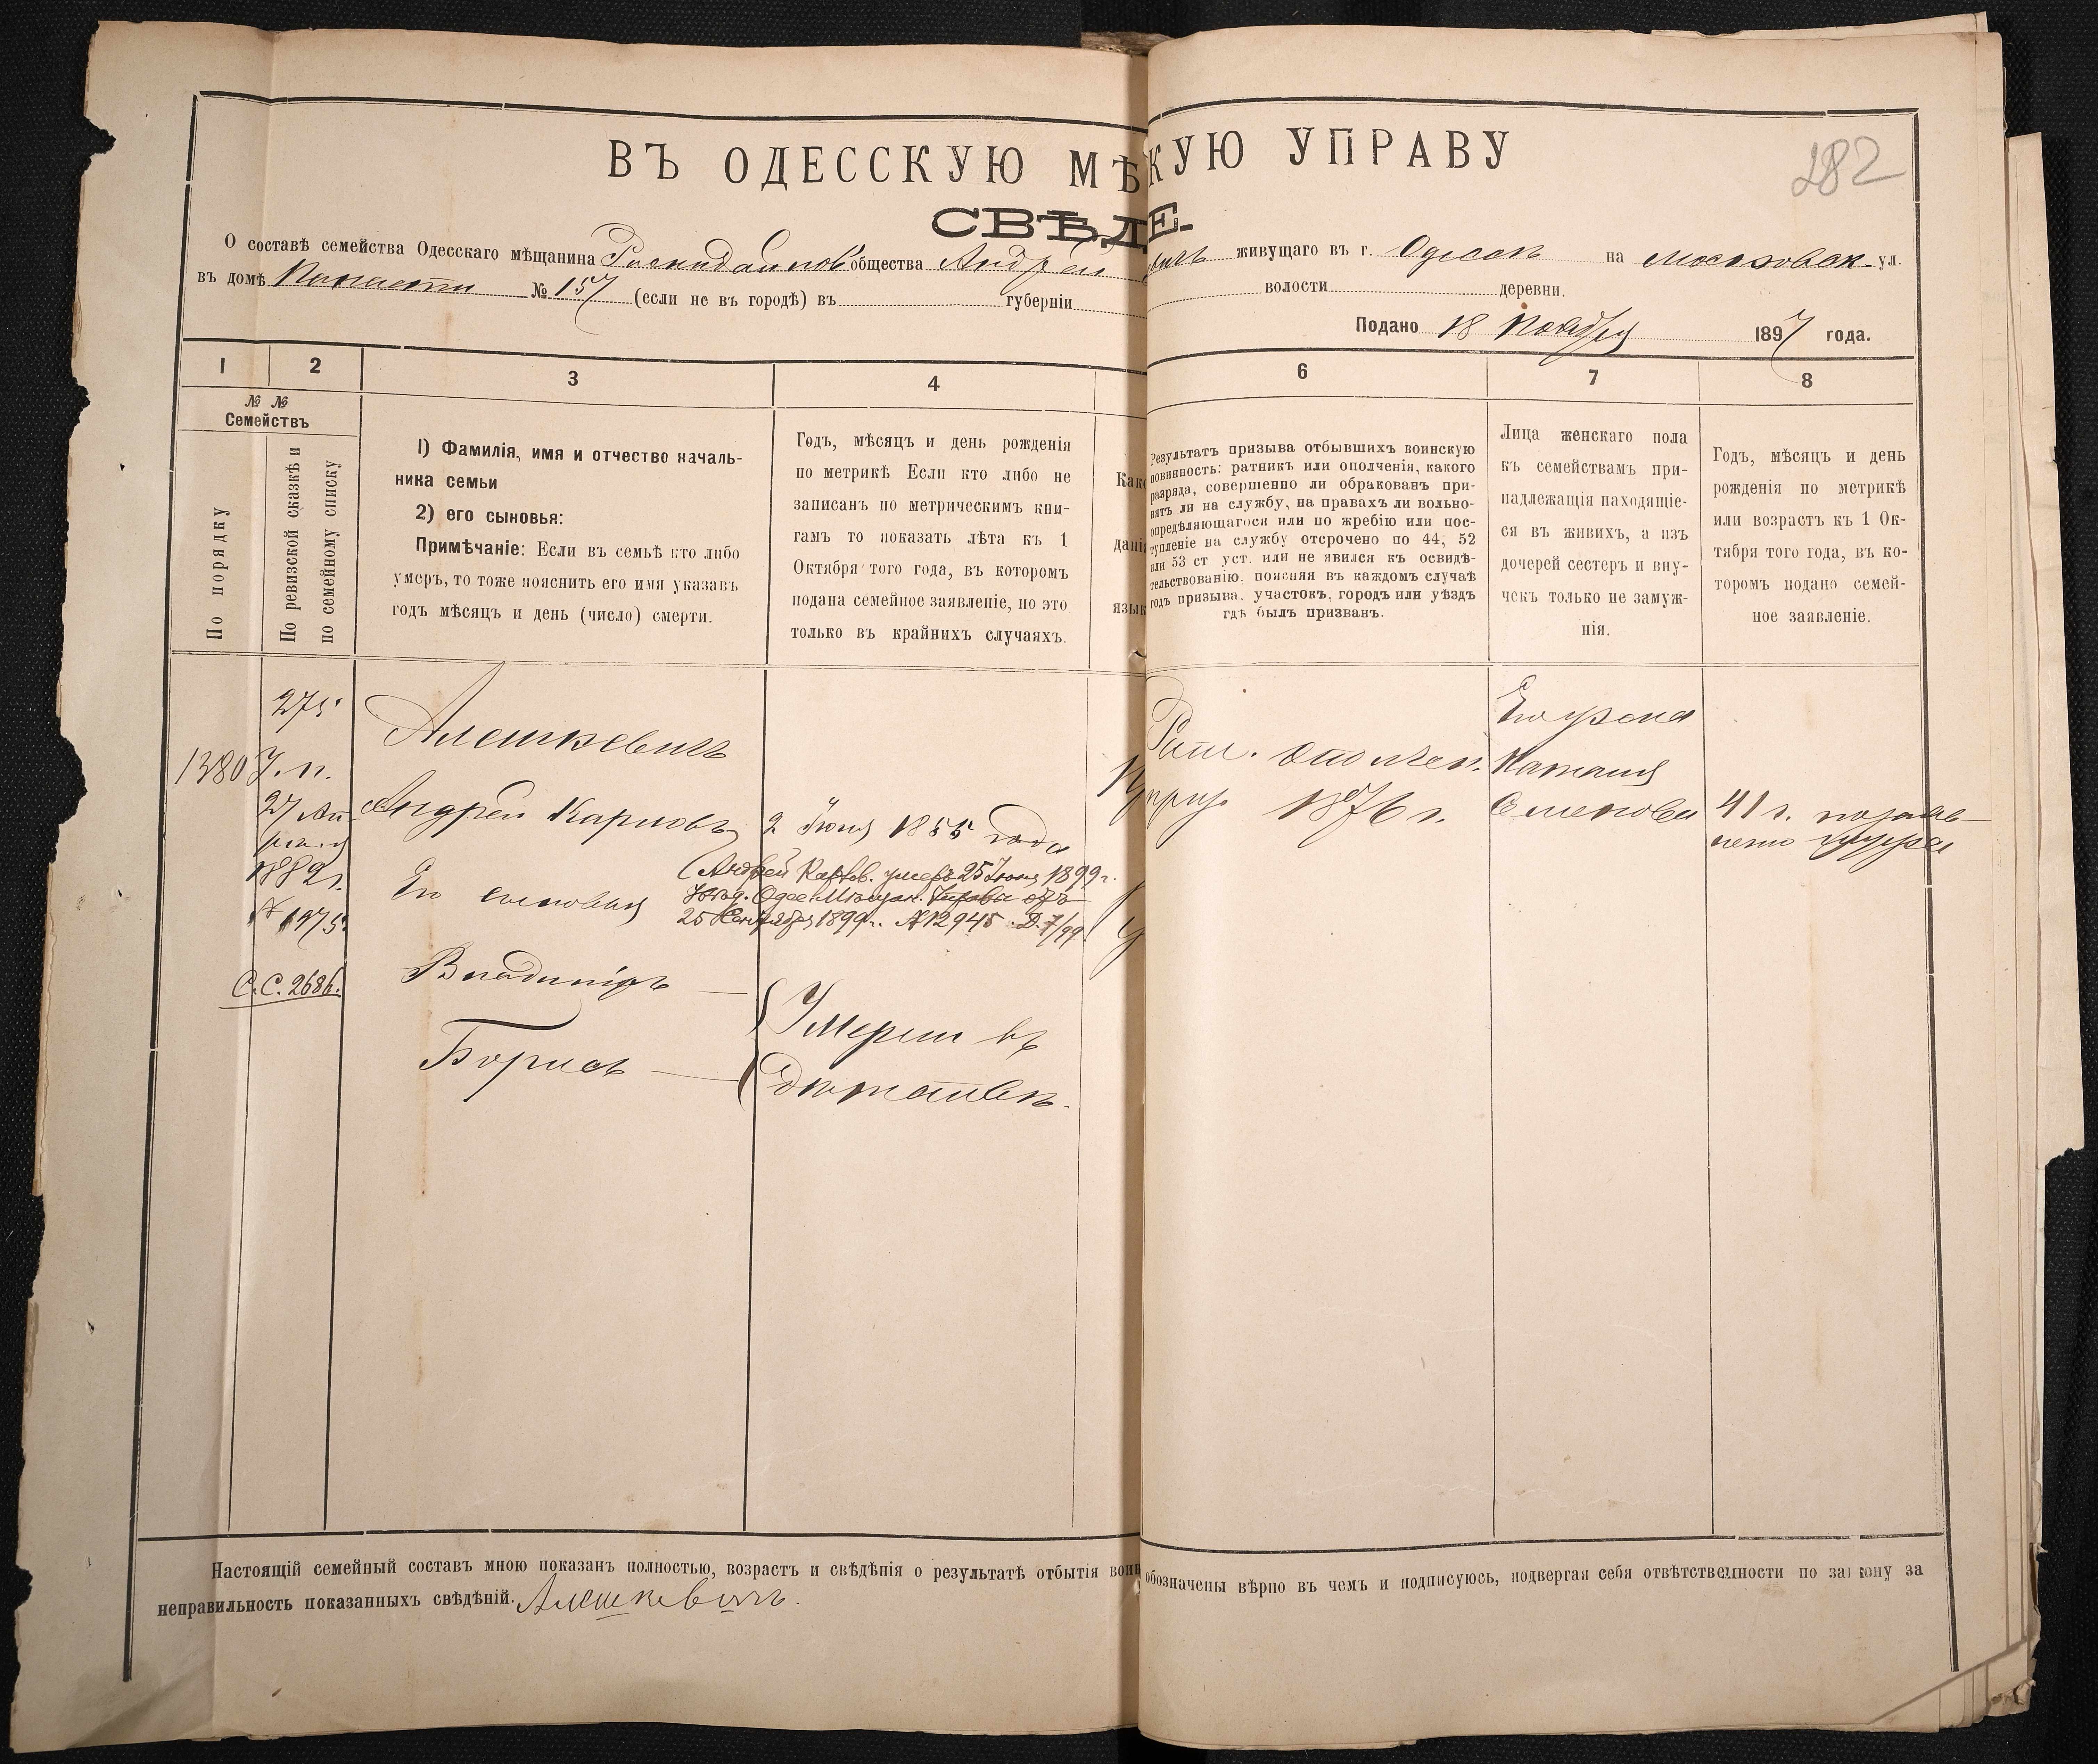 282
ВЪ ОДЕССКУЮ МѢ КУЮ УПРАВУ
СВѢДЕ-
О составѣ семейства Одесскаго мѣщанина общества Андрей живущаго въ г. Одессѣ на Московск. ул.
въ домѣ № 157 (если не въ городѣ) въ губерніи волости деревни.
Подано 18 Ноября 1897 года.
1 2 3 4 6 7 8
№ № Семействъ
По порядку
По ревизской сказкѣ и
по семейному списку
1) Фамилія, имя и отчество началь-
ника семьи
2) его сыновья:
Примѣчаніе: Если въ семьѣ кто либо
умеръ, то тоже пояснить его имя указавъ
годъ мѣсяцъ и день (число) смерти.
Годъ, мѣсяцъ и день рожденія
по метрикѣ Если кто либо не
записанъ по метрическимъ кни-
гамъ то показать лѣта къ 1
Октября того года, въ которомъ
подана семейное заявленіе, но это
только въ крайнихъ случаяхъ.
Како
дані
язык
Результатъ призыва отбывшихъ воинскую
повинность: ратникъ или ополченія, какого
разряда, совершенно ли обракованъ при-
нятъ ли на службу, на правахъ ли вольно-
опредѣляющагося или по жребію или пос-
тупленіе на службу отсрочено по 44, 52
или 53 ст уст. или не явился къ освидѣ-
тельствованію, поясняя въ каждомъ случаѣ
годъ призыва, участокъ, городъ или уѣздъ
гдѣ былъ призванъ.
Лица женскаго пола
къ семействамъ при-
надлежащія находящіе-
ся въ живихъ, а изъ
дочерей сестеръ и вну-
чекъ только не замуж-
нія.
Годъ, мѣсяцъ и день
рожденія по метрикѣ
или возрастъ къ 1 Ок-
тября того года, въ ко-
торомъ подано семей-
ное заявленіе.
275
1380
27 Ап
рѣля
1882 г.
№ 1975
С.С. 2686.
Алешкевичъ
Андрей Карповъ 2 Іюня 1855 года
(Андрей Карпов. умеръ 25 Іюня 1899 г.
25 Сентября 1899 г. № 12945 Д. 7/99)
Его сыновья
Владиміръ —
Борисъ —
Умерли въ
дѣтствѣ.
Рат. ополчен.
приз. 1876 г.
Его жена
Наталія
Семенова
41 г. по заяв-
лению мужа
Настоящій семейный составъ мною показанъ полностью, возрастъ и свѣдѣнія о результатѣ отбытія воин обозначены вѣрно въ чемъ и подписуюсь, подвергая себя отвѣтственности по закону за
неправильность показанныхъ свѣдѣній. Алешкевичъ.